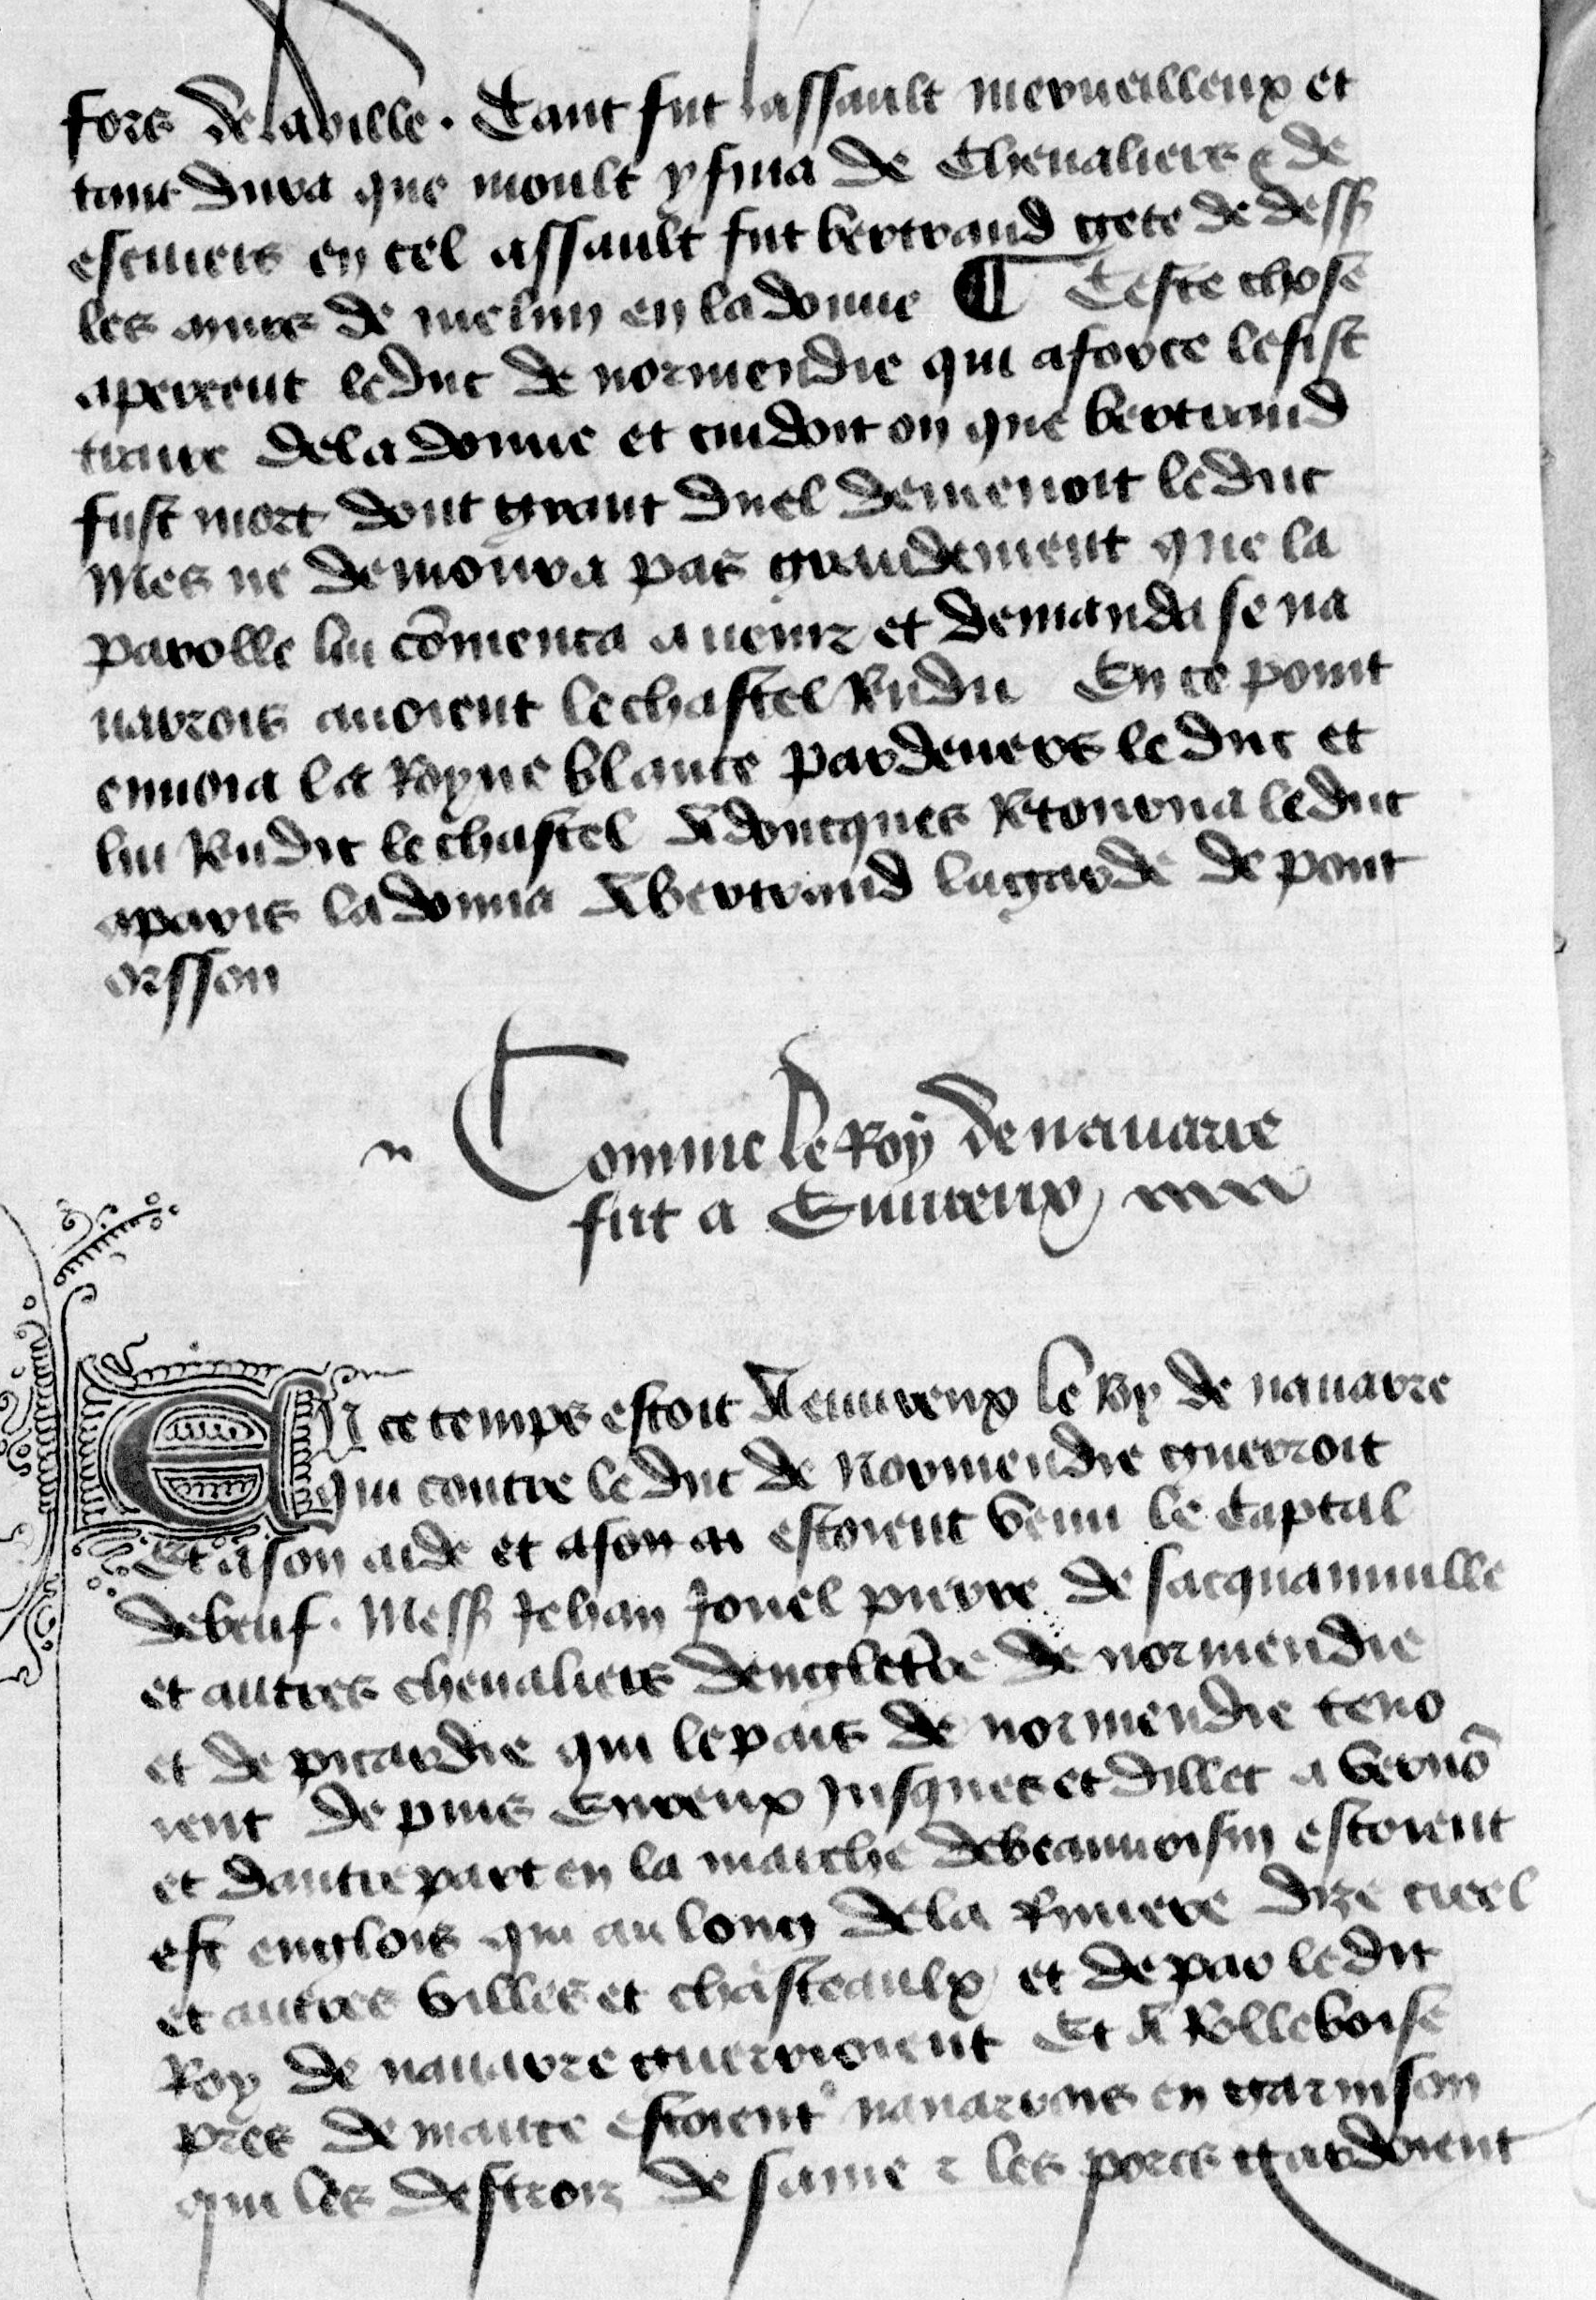 fors de la ville . Tant fut lassault merueilleux et
tant dura que moult y fina de Cheualiers & de
escuiers en cel assault fut bertrand gete de dess
les murs de melun en la douue ¶ Ceste chose
aperceut le duc de normendie qui a force le fist
traire de la douue et cuidoit on que bertrand
fust mort dont grant duel demenoit le duc
Mes ne demoura pas grandement que la
parolle lui cõmenca a uenir et demanda se na
uarrois auoient le chastel Rendu En ce point
enuoia la Royne blance par deuers le duc et
lui Rendit le chastel Adoncques Retourna le duc
a paris la donna A bertrand la garde de pont
orsson
Comme le Roy de nauarre
fut a Euureux
En ce temps estoit A euureux le Roy de nauarre
qui contre le duc de Normendie guerroit
Et a son aide et a son estoient venu le Captal
de beuf . Mess Jehan Jouel pierre de sacquainuille
et autres cheualiers dengletere de normendie
et de picardie qui le pais de normendie teno
ient depuis Eureux Jusques et dillec a vernõ
et dautre part en la marche de beauuoisin estoient
est englois qui au long de la Riuiere dize creel
et autres villes et chasteaulx et de par le dit
Roy de nauarre guerrioient Et A Rolleboise
pres de mante estoient nauarrois en garnison
qui les destroiz de saine & les pors gardoient